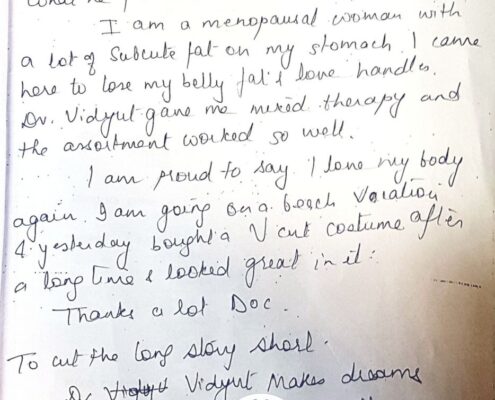 I am a menopausal woman with
a lot of Subcute fat on my stomach. I came
here to lose my belly fat & love handles.
Dr. Vidyut gave me mixed therapy and
the assortment worked so well.
I am proud to say I love my body
again. I am going on a beach vacation
& yesterday bought a V cut costume after
a long time & looked great in it.
Thanks a lot Doc.
To cut the long story short.
Dr Vidyut makes dreams